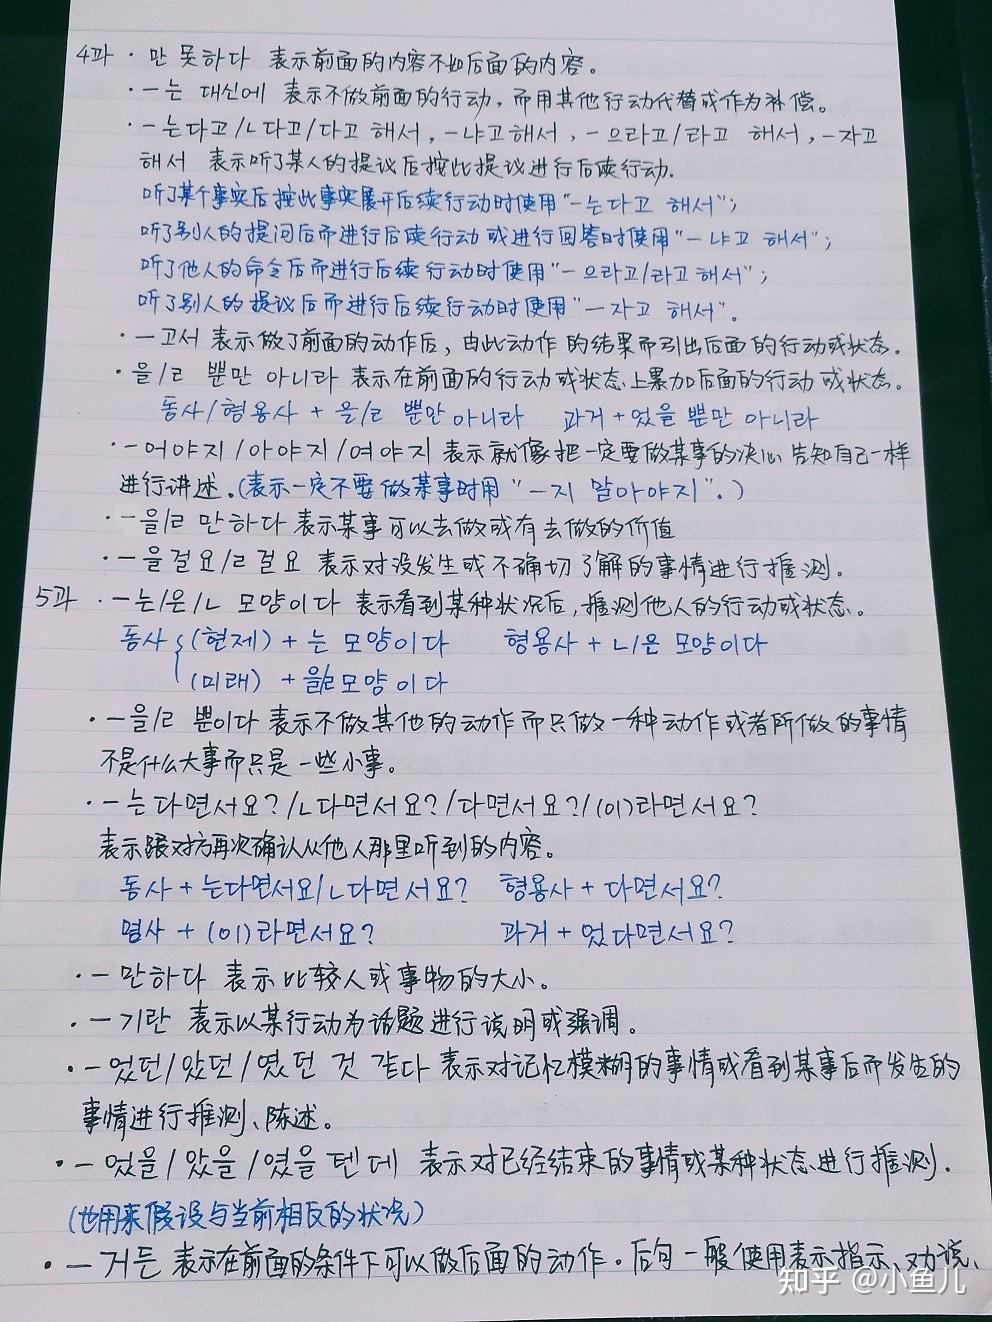 4과 · 만 못하다 表示前面的内容不如后面的内容。
· -는 대신에 表示不做前面的行动，而用其他行动代替或作为补偿。
· -는다고/ㄴ다고/다고 해서, -냐고 해서, -으라고/라고 해서, -자고
해서 表示听了某人的提议后按此提议进行后续行动.
听了某个事实后按此事实展开后续行动时使用“-는다고 해서”;
听了别人的提问后而进行后续行动或进行回答时使用“-냐고 해서”;
听了他人的命令后而进行后续行动时使用“-으라고/라고 해서”;
听了别人的提议后而进行后续行动时使用“-자고 해서”.
· -고서 表示做了前面的动作后，由此动作的结果而引出后面的行动或状态.
· 을/ㄹ 뿐만 아니라 表示在前面的行动或状态上累加后面的行动或状态.
동사/형용사 + 을/ㄹ 뿐만 아니라 과거 + 었을 뿐만 아니라
· -어야지/아야지/여야지 表示就像把一定要做某事的决心告知自己一样
进行讲述.(表示一定不要做某事时用“-지 말아야지”.)
· -을/ㄹ 만하다 表示某事可以去做或有去做的价值
· -을걸요/ㄹ걸요 表示对没发生或不确切了解的事情进行推测.
5과 · -는/은/ㄴ 모양이다 表示看到某种状况后，推测他人的行动或状态.
동사 { (현제) + 는 모양이다 형용사 + ㄴ/은 모양이다
(미래) + 을/ㄹ 모양이다
· -을/ㄹ 뿐이다 表示不做其他的动作而只做一种动作或者所做的事情
不是什么大事而只是一些小事。
· -는다면서요?/ㄴ다면서요?/다면서요?/(이)라면서요?
表示跟对方再次确认从他人那里听到的内容。
동사 + 는다면서요/ㄴ다면서요? 형용사 + 다면서요?
명사 + (이)라면서요? 과거 + 었다면서요?
· -만하다 表示比较人或事物的大小。
· -기란 表示以某行动为话题进行说明或强调。
· -었던/았던/였던 것 같다 表示对记忆模糊的事情或看到某事后而发生的
事情进行推测、陈述。
· -었을/았을/였을 텐데 表示对已经结束的事情或某种状态进行推测.
(也用来假设与当前相反的状况)
· -거든 表示在前面的条件下可以做后面的动作。后句一般使用表示指示、劝说、
知乎 @小鱼儿